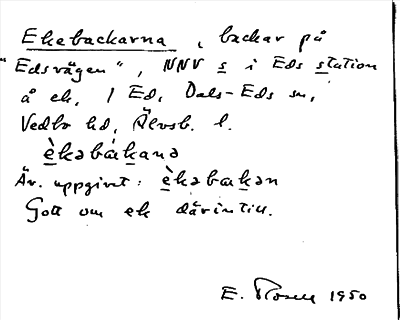 Ekebackarna, backar på
"Edsvägen", NNV s i Eds station
å ek, 1 Ed, Dals-Eds sn,
Vedbo hd, Älvsb. l.
èkabàkana
Äv. uppgivet: èkabakən
Gott om ek därintill.
E. Rosell 1950